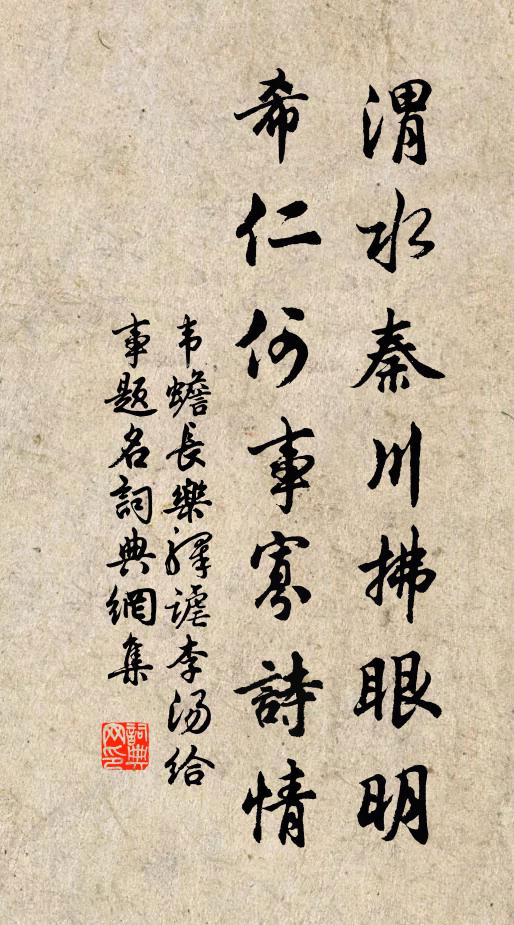 渭水秦川拂眼明
希仁何事寡詩情
韦蟾長樂驛謔李湯给
事題名詞典網集
詞典网印